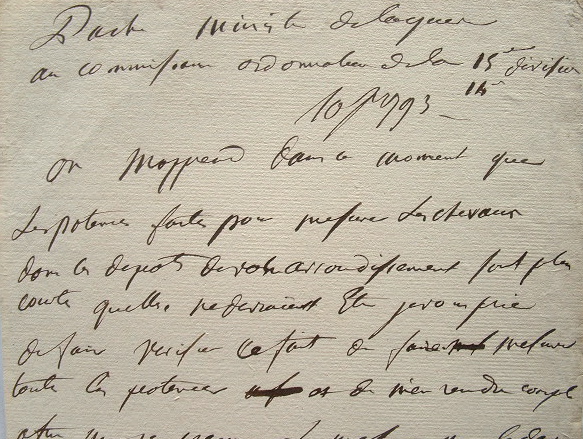 Pache ministre de la guerre
au commissaire ordonnateur de la 15e division
14e
10 Jer 1793
on m'apprend dans ce moment que
Les potences faites pour mesurer Les chevaux
dans les depots de votre arrondissement sont plus
courtes quelles ne devraient Etre je vous prie
de faire verifier ce fait de faire mesurer
toutes les potences et de m'en rendre compte
afin